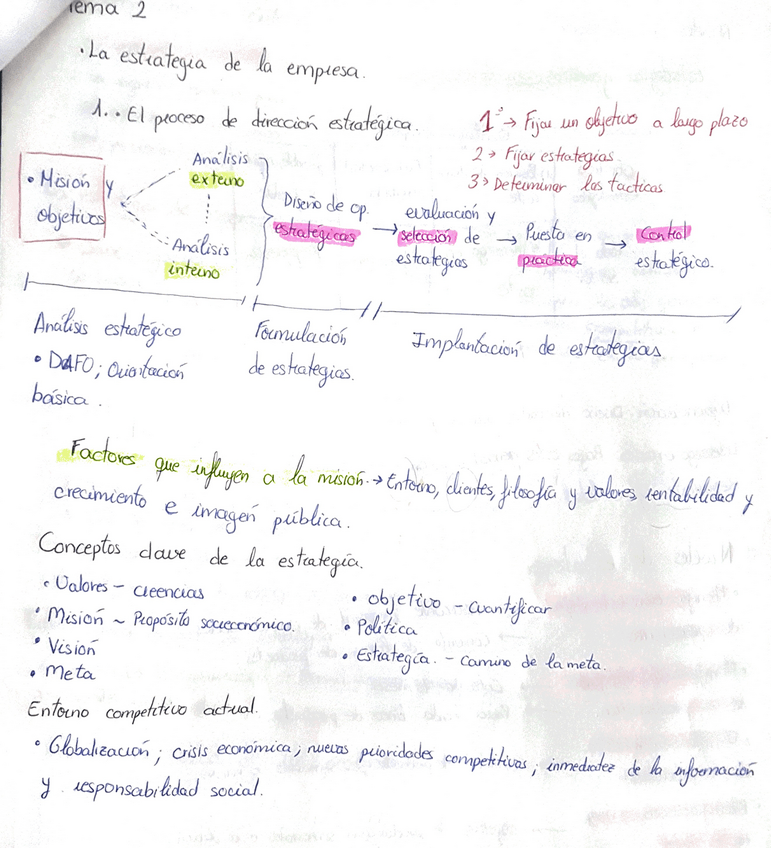 Tema 2
· La estrategia de la empresa.
1.· El proceso de dirección estratégica.
1º → Fijar un objetivo a largo plazo
2 → Fijar estrategias.
3 → Determinar las tacticas
• Misión y
objetivos
Análisis
externo
Análisis
interno
Diseño de op.
estratégicas
→ evaluación y
selección de
estrategias
→ Puesta en
practica
→ Control
estratégico.
Análisis estratégico
• DAFO; Orientación
básica.
Formulación
de estrategias.
Implantación de estrategias.
Factores que influyen a la misión. → Entorno, clientes, filosofía y valores, rentabilidad y
crecimiento e imagen pública.
Conceptos clave de la estrategia.
• Valores – creencias
• Misión ~ Propósito socieconómico.
• Visión
• Meta
• objetivo – Cuantificar
• Política
• Estrategia. – Camino de la meta.
Entorno competitivo actual.
• Globalización; crisis económica; nuevas prioridades competitivas; inmediatez de la información
y responsabilidad social.